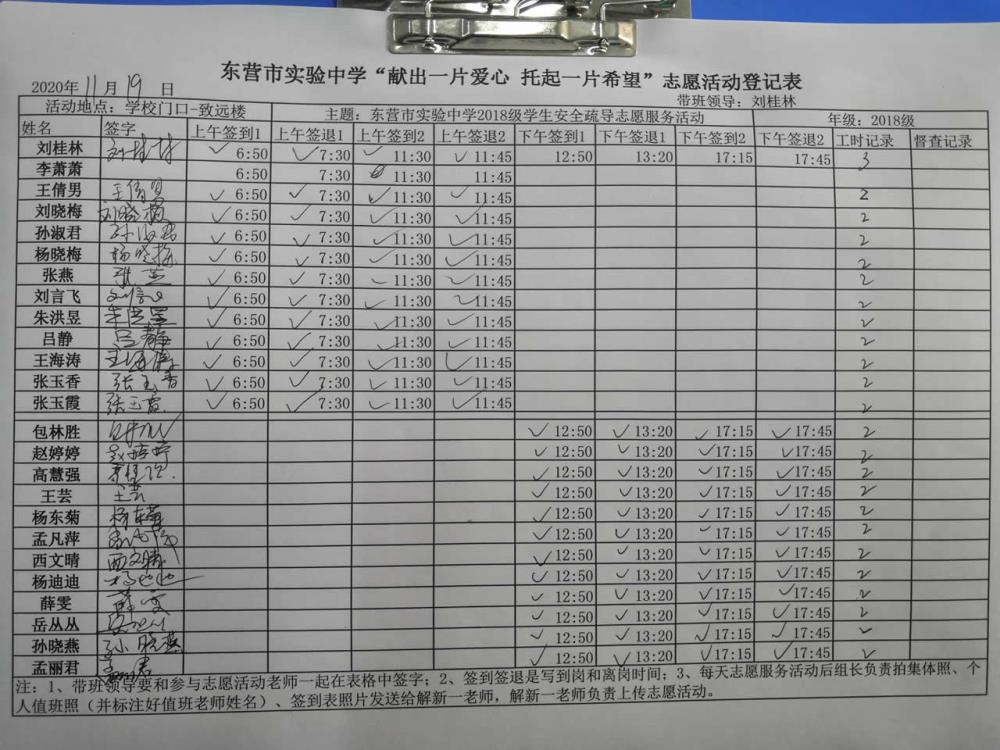 东营市实验中学“献出一片爱心 托起一片希望”志愿活动登记表
2020年11月19日 带班领导：刘桂林
活动地点：学校门口-致远楼 主题：东营市实验中学2018级学生安全疏导志愿服务活动 年级：2018级
姓名 签字 上午签到1 上午签退1 上午签到2 上午签退2 下午签到1 下午签退1 下午签到2 下午签退2 工时记录 督查记录
刘桂林 刘桂林 ✓6:50 ✓7:30 ✓11:30 ✓11:45 12:50 13:20 17:15 17:45 3
李萧萧 6:50 7:30 11:30 11:45
王倩男 王倩男 ✓6:50 ✓7:30 ✓11:30 ✓11:45 2
刘晓梅 刘晓梅 ✓6:50 ✓7:30 ✓11:30 ✓11:45 2
孙淑君 孙淑君 ✓6:50 ✓7:30 ✓11:30 ✓11:45 2
杨晓梅 杨晓梅 ✓6:50 ✓7:30 ✓11:30 ✓11:45 2
张燕 张燕 ✓6:50 ✓7:30 ✓11:30 ✓11:45 2
刘言飞 ✓6:50 ✓7:30 ✓11:30 ✓11:45 2
朱洪昱 朱洪昱 ✓6:50 ✓7:30 ✓11:30 ✓11:45 2
吕静 吕静 ✓6:50 ✓7:30 ✓11:30 ✓11:45 2
王海涛 王海涛 ✓6:50 ✓7:30 ✓11:30 ✓11:45 2
张玉香 张玉香 ✓6:50 ✓7:30 ✓11:30 ✓11:45 2
张玉霞 张玉霞 ✓6:50 ✓7:30 ✓11:30 ✓11:45 2
包林胜 ✓12:50 ✓13:20 ✓17:15 ✓17:45 2
赵婷婷 赵婷婷 ✓12:50 ✓13:20 ✓17:15 ✓17:45 2
高慧强 ✓12:50 ✓13:20 ✓17:15 ✓17:45 2
王芸 王芸 ✓12:50 ✓13:20 ✓17:15 ✓17:45 2
杨东菊 杨东菊 ✓12:50 ✓13:20 ✓17:15 ✓17:45 2
孟凡萍 ✓12:50 ✓13:20 ✓17:15 ✓17:45 2
西文晴 西文晴 ✓12:50 ✓13:20 ✓17:15 ✓17:45 2
杨迪迪 ✓12:50 ✓13:20 ✓17:15 ✓17:45 2
薛雯 薛雯 ✓12:50 ✓13:20 ✓17:15 ✓17:45 2
岳丛丛 ✓12:50 ✓13:20 ✓17:15 ✓17:45 2
孙晓燕 孙晓燕 ✓12:50 ✓13:20 ✓17:15 ✓17:45
孟丽君 ✓12:50 ✓13:20 ✓17:15 ✓17:45 2
注：1、带班领导要和参与志愿活动老师一起在表格中签字；2、签到签退是写到岗和离岗时间；3、每天志愿服务活动后组长负责拍集体照、个
人值班照（并标注好值班老师姓名）、签到表照片发送给解新一老师，解新一老师负责上传志愿活动。